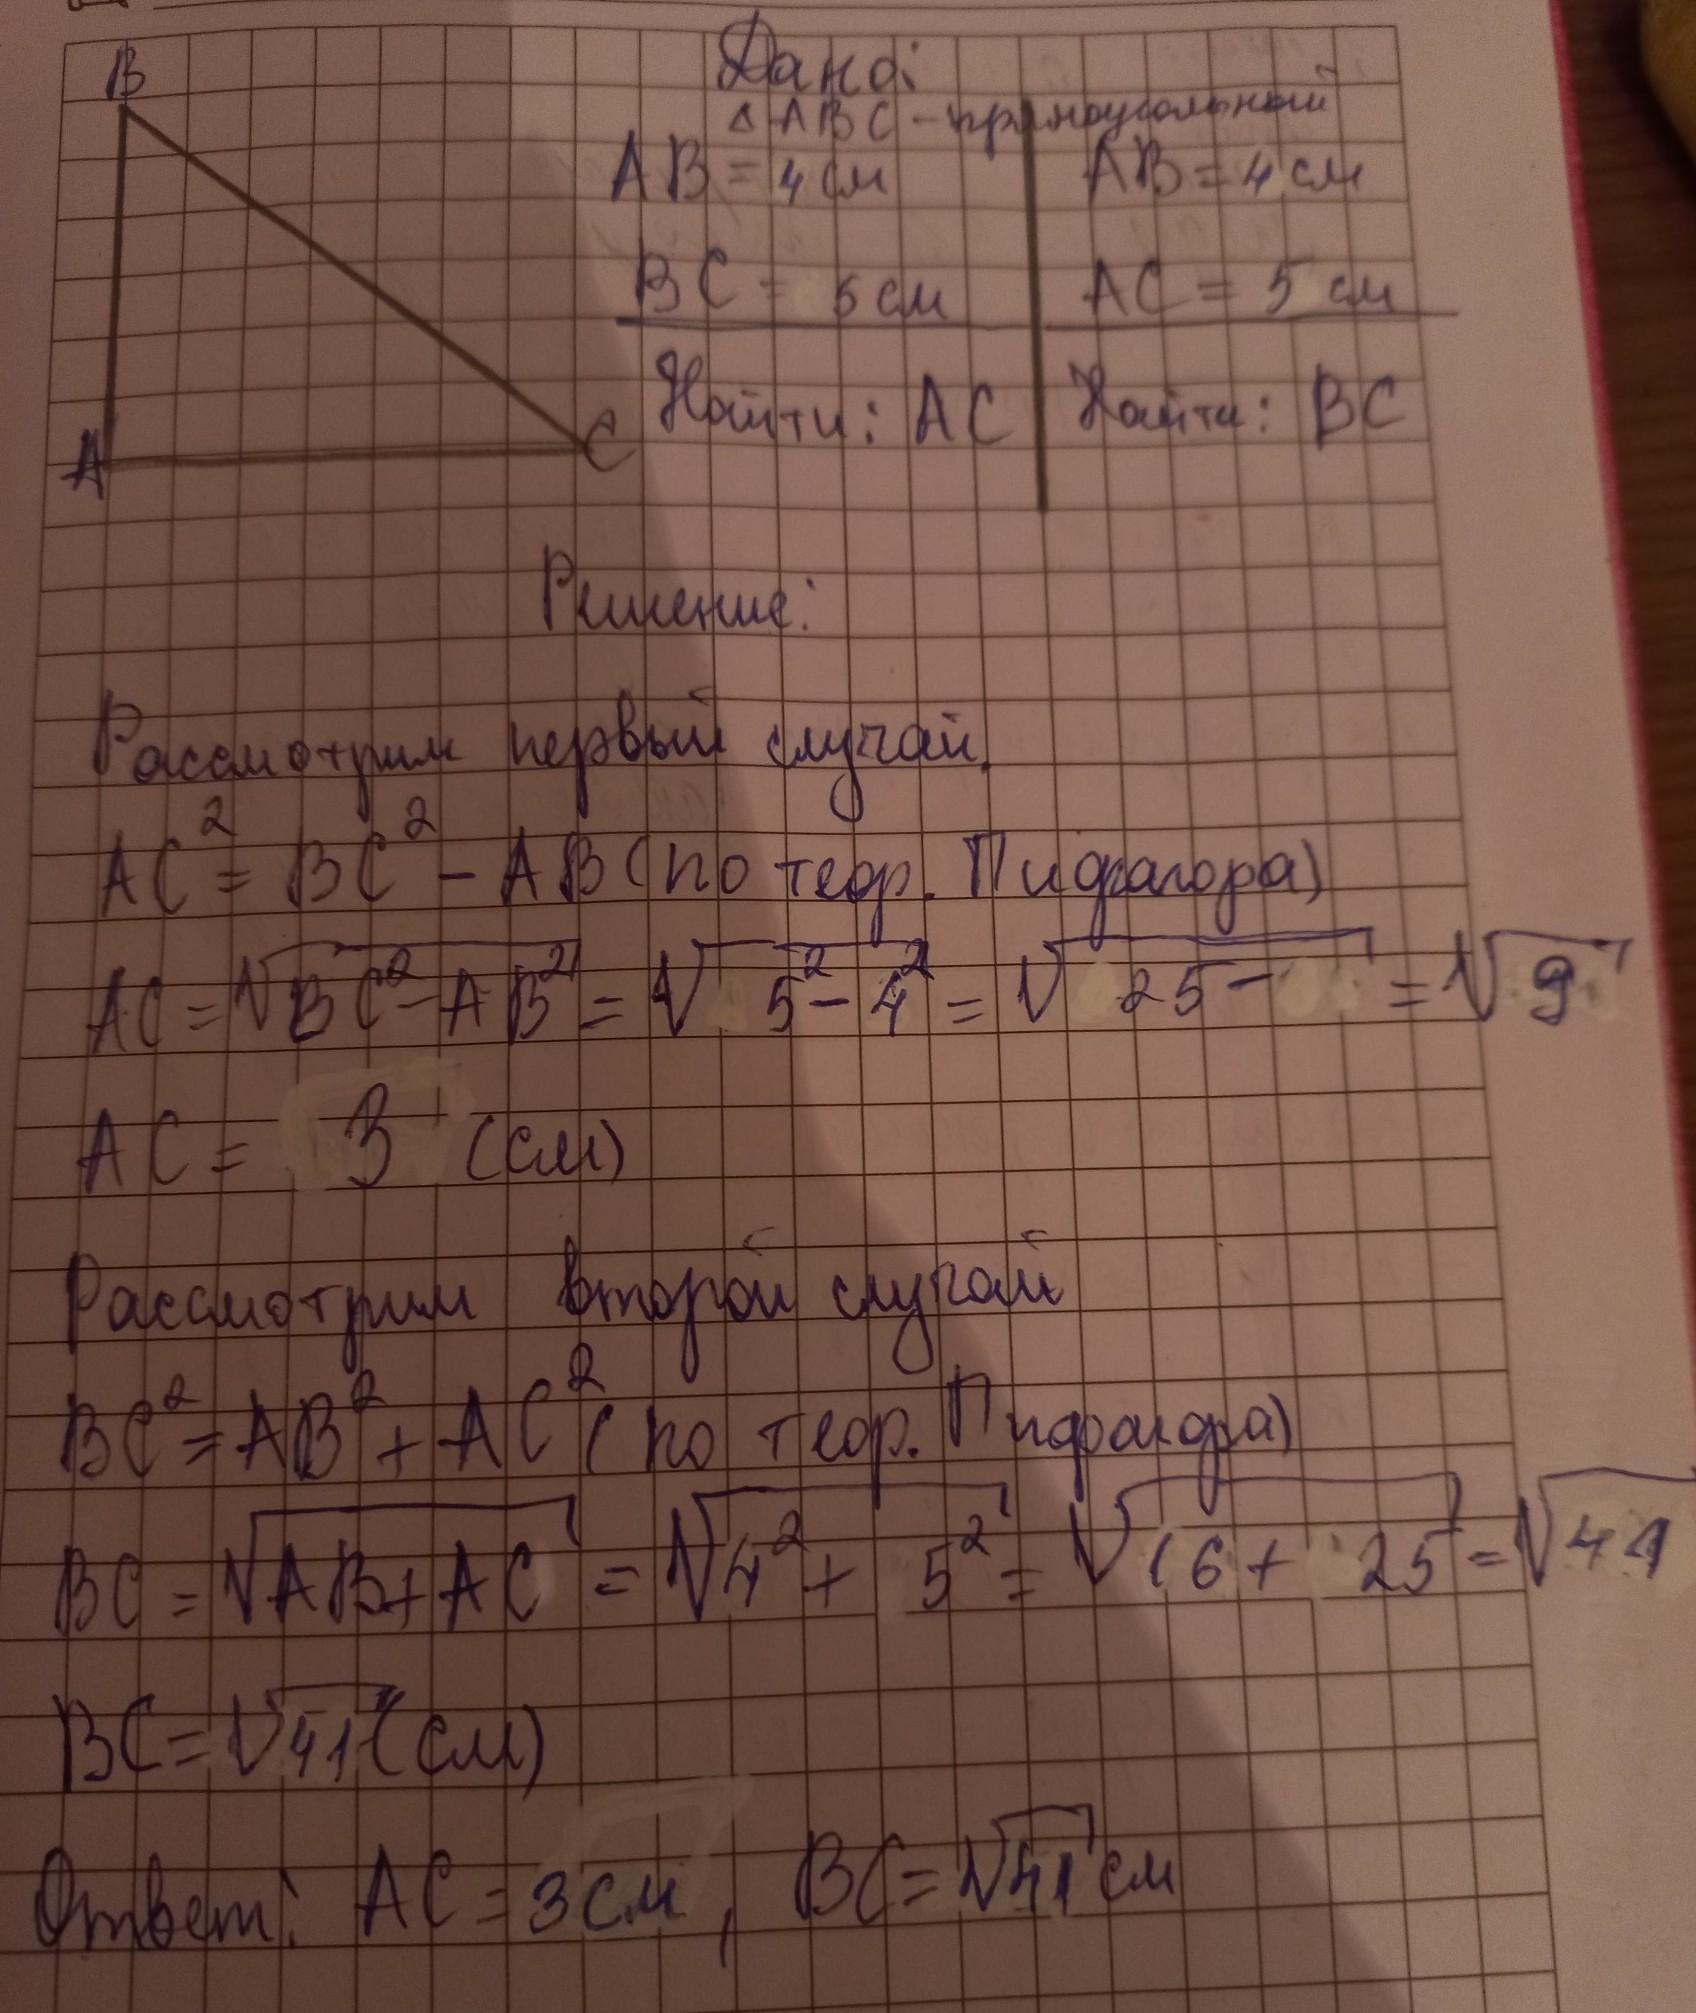 B
Дано:
△ ABC - прямоугольный
AB = 4 см
AB = 4 см
BC = 5 см
AC = 5 см
Найти: AC
Найти: BC
A
C
Решение:
Рассмотрим первый случай.
AC² = BC² - AB (по теор. Пифагора)
AC = √BC² - AB² = √5² - 4² = √25 - = √9
AC = 3 (см)
Рассмотрим второй случай
BC² = AB² + AC² (по теор. Пифагора)
BC = √AB + AC = √4² + 5² = √16 + 25 = √41
BC = √41 (см)
Ответ: AC = 3 см, BC = √41 см